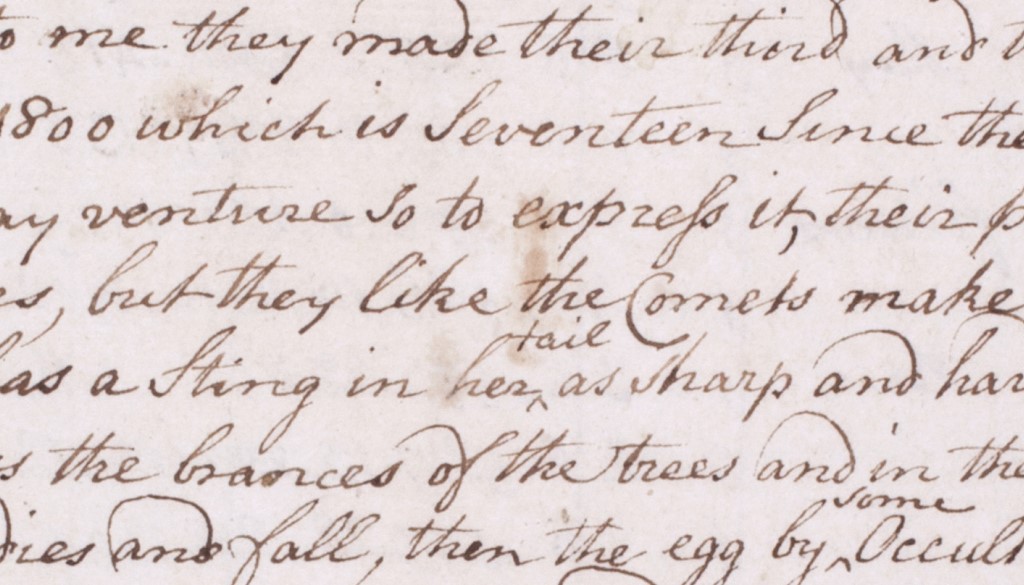 to me they made their third and
1800 which is Seventeen Since the
ay venture So to express it, their
es, but they like the Comets make
has a Sting in her tail as Sharp and har
s the brances of the trees and in the
dies and fall, then the egg by some Occult